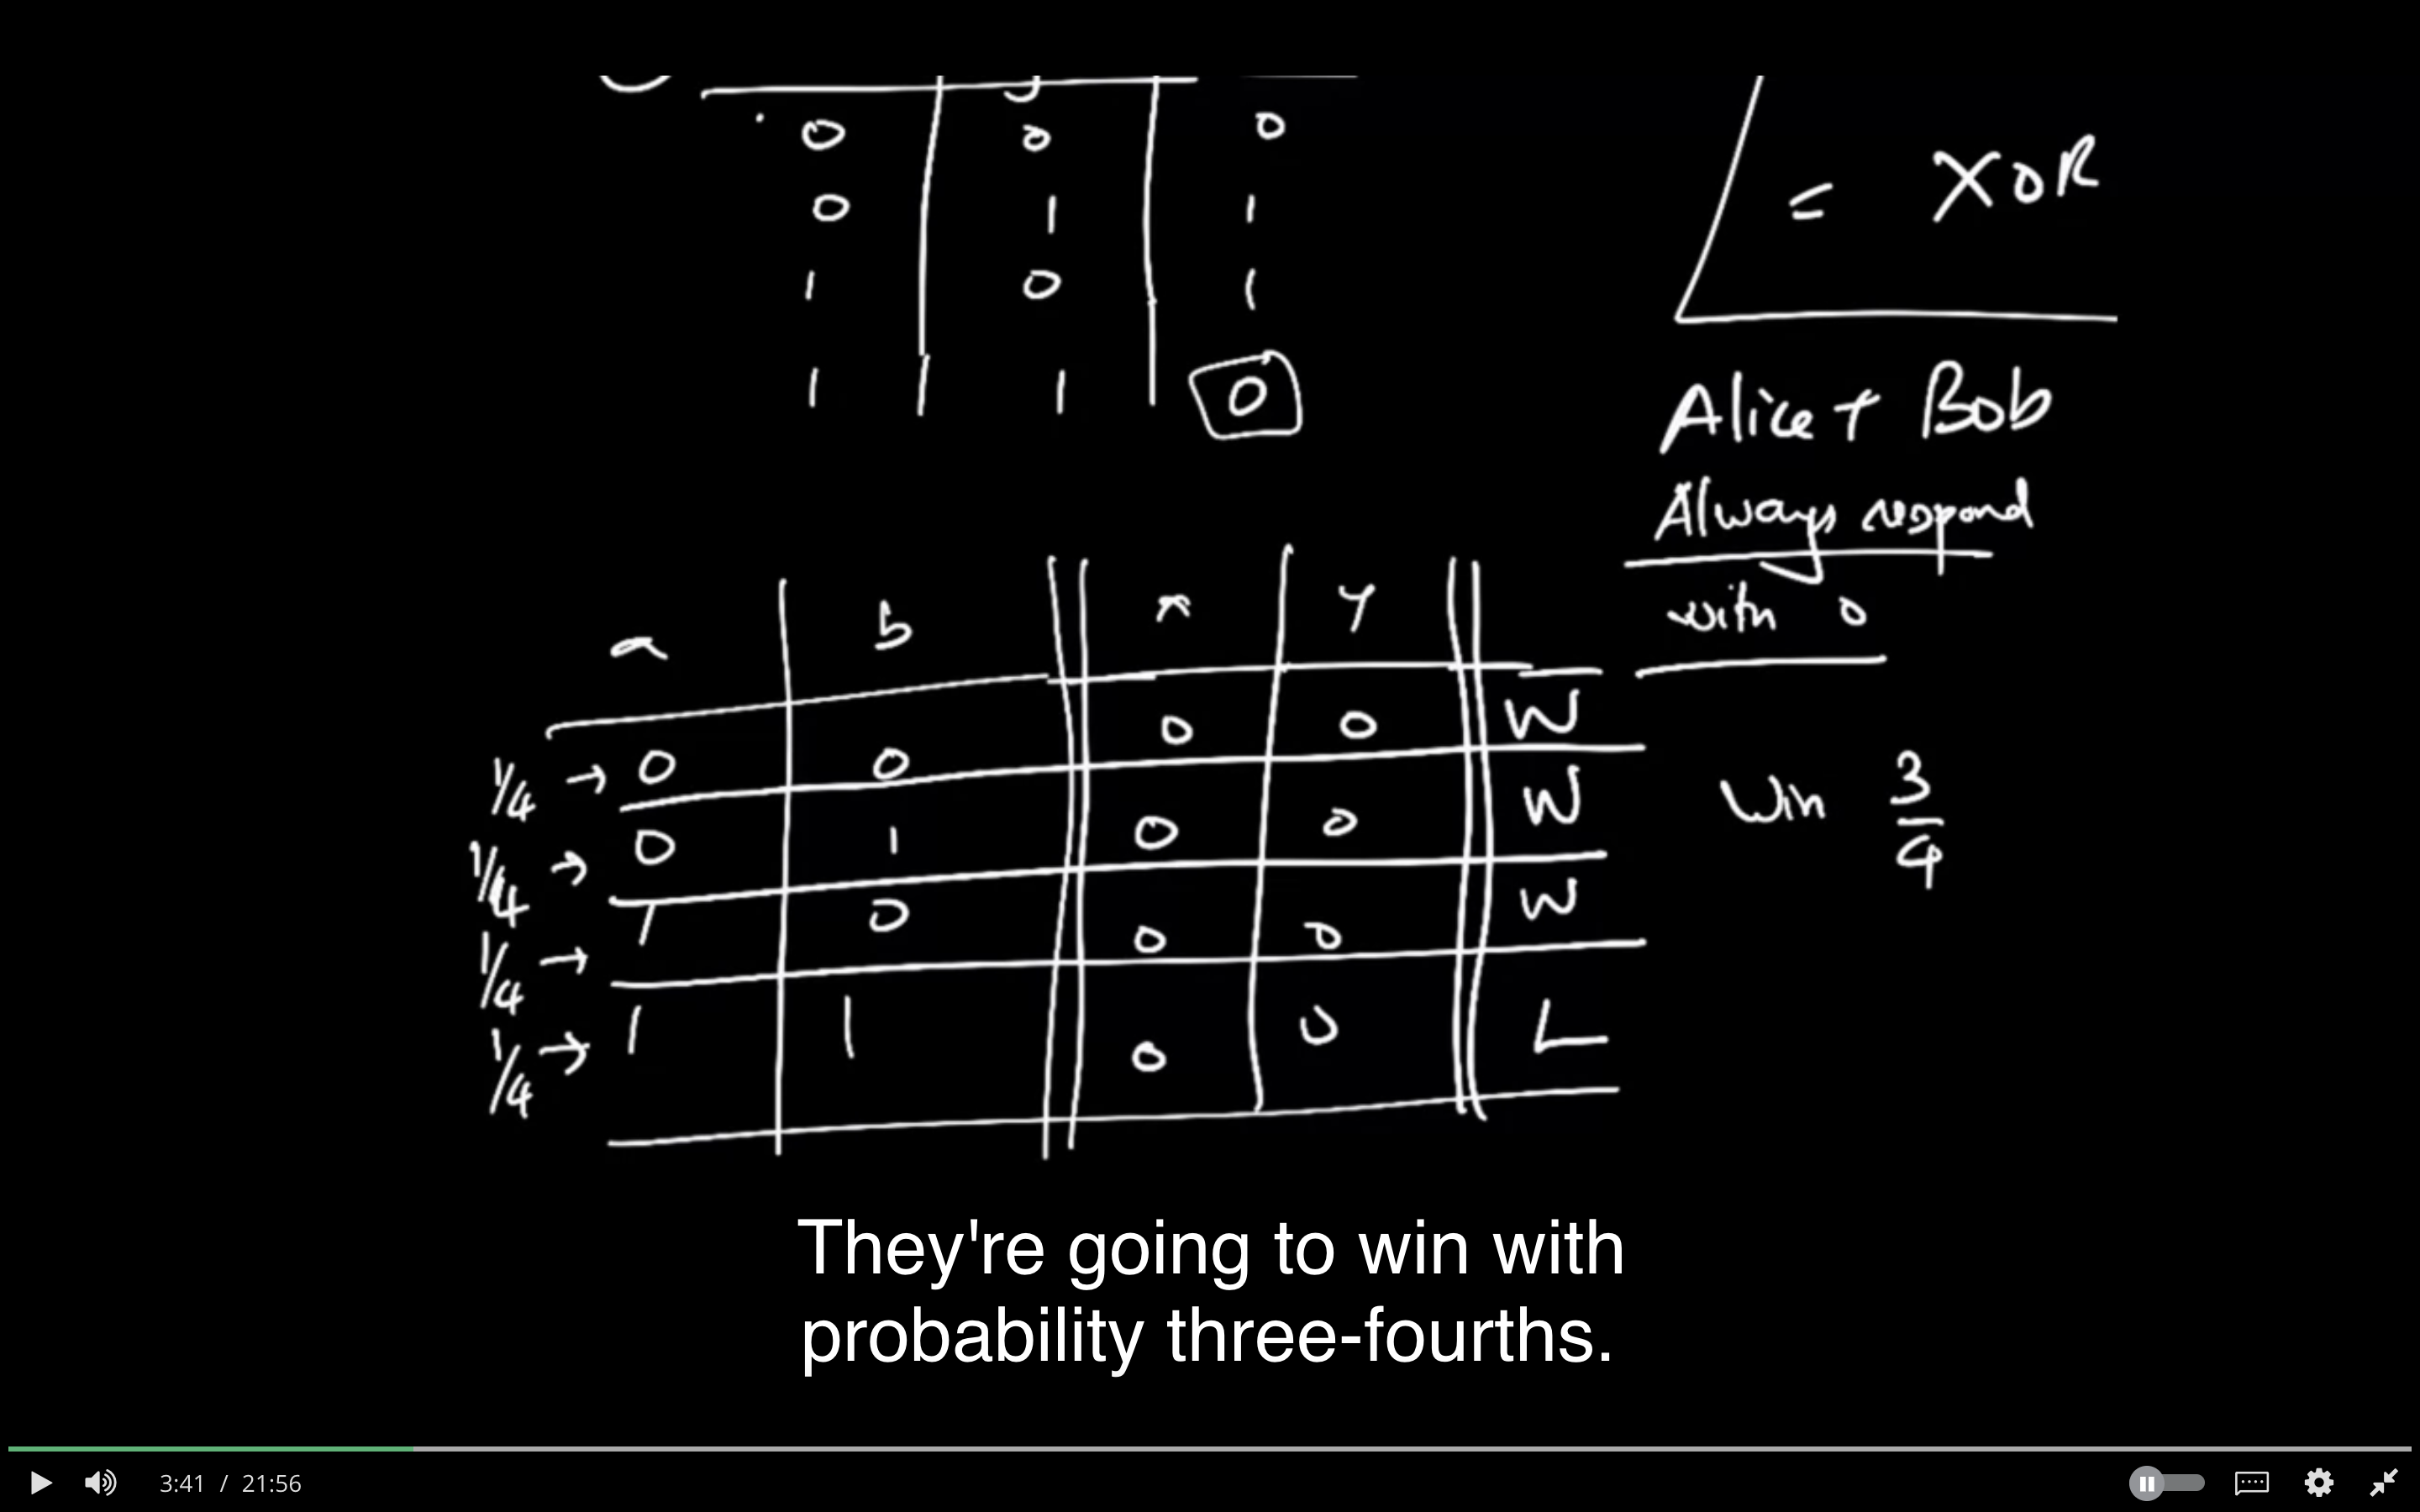 0 0 0
0 1 1
1 0 1
1 1 0
= XOR
Alice + Bob
Always respond
with 0
a b x y
1/4 → 0 0 0 0 W
1/4 → 0 1 0 0 W
1/4 → 1 0 0 0 W
1/4 → 1 1 0 0 L
Win 3/4
They're going to win with
probability three-fourths.
3:41 / 21:56